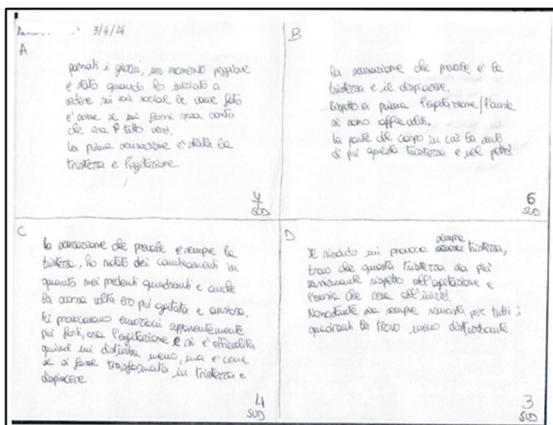 3/4/24
A
passati i giorni, un momento peggiore
è stato quando ho iniziato a
vedere sui vari social le varie foto
è come se mi fossi resa conto
che era tutto vero.
La prima sensazione è stata la
tristezza e l'agitazione.
7
SUD
B
la sensazione che prevale è la
tristezza e il dispiacere.
Rispetto a prima l'agitazione/l'ansia
si sono affievolite.
la parte del corpo in cui la sento
di più questa tristezza è nel petto
6
SUD
C
la sensazione che prevale è sempre la
tristezza, ho notato dei cambiamenti in
quanto nei predenti quadranti e anche
la scorsa volta ero più agitata e ansiosa.
Mi provocavano emozioni apparentemente
più forti, ora l'agitazione si è affievolita
quindi mi disturba meno, ma è come
se si fosse trasformata in tristezza e
dispiacere
4
SUD
D
Il ricordo mi provoca sempre tristezza,
trovo che questa tristezza sia più
rispetto all'agitazione e
l'ansia che c'era all'inizio.
Nonostante sia sempre rimasta per tutti i
quadranti la trovo meno disturbante.
3
SUD